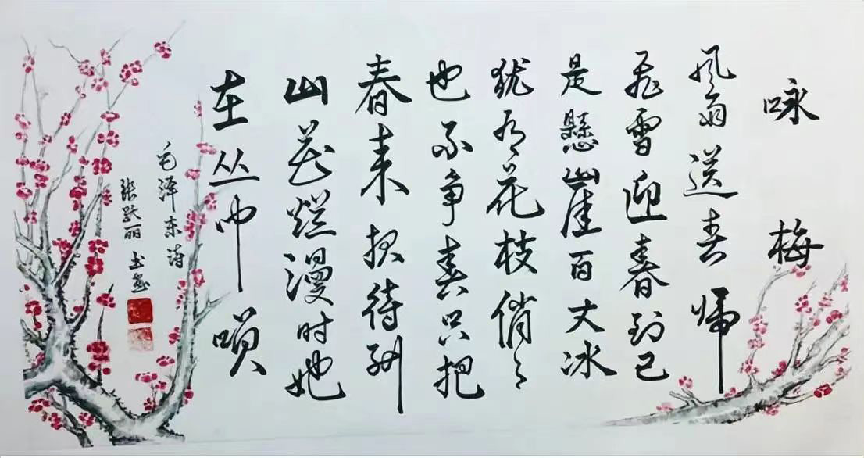 咏梅
风雨送春归
飞雪迎春到已
是懸崖百丈冰
犹有花枝俏々
也不争春只把
春来报待到
山花烂漫时她
在丛中咲
毛泽东诗
张跃丽书画